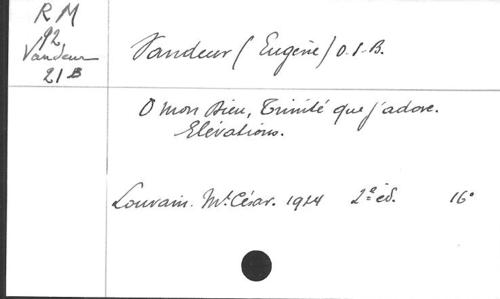 R M
92
Vandeur
21 B
Vandeur (Eugène) O.S.B.
O mon Dieu, Trinité que j'adore.
Elévations.
Louvain. Mt. César. 1924 2e éd. 16°